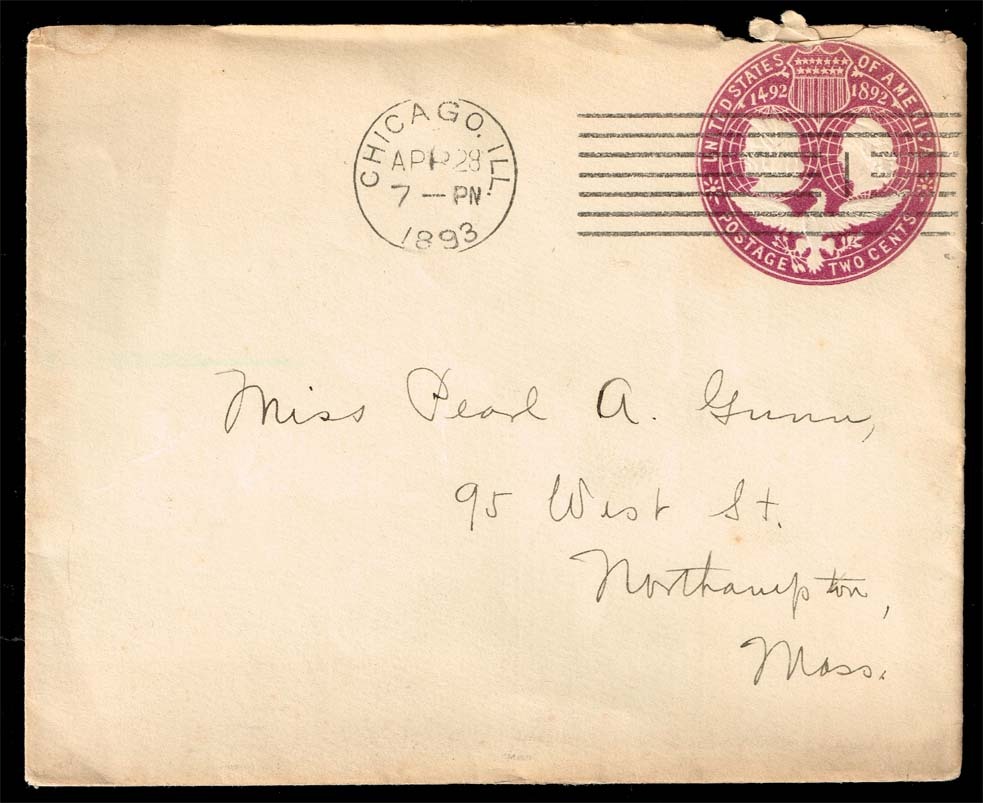 CHICAGO, ILL.
APR 28
7 — PM
1893
UNITED STATES OF AMERICA
1492 1892
POSTAGE TWO CENTS
1
Miss Pearl A. Gunn,
95 West St.
Northampton,
Mass.